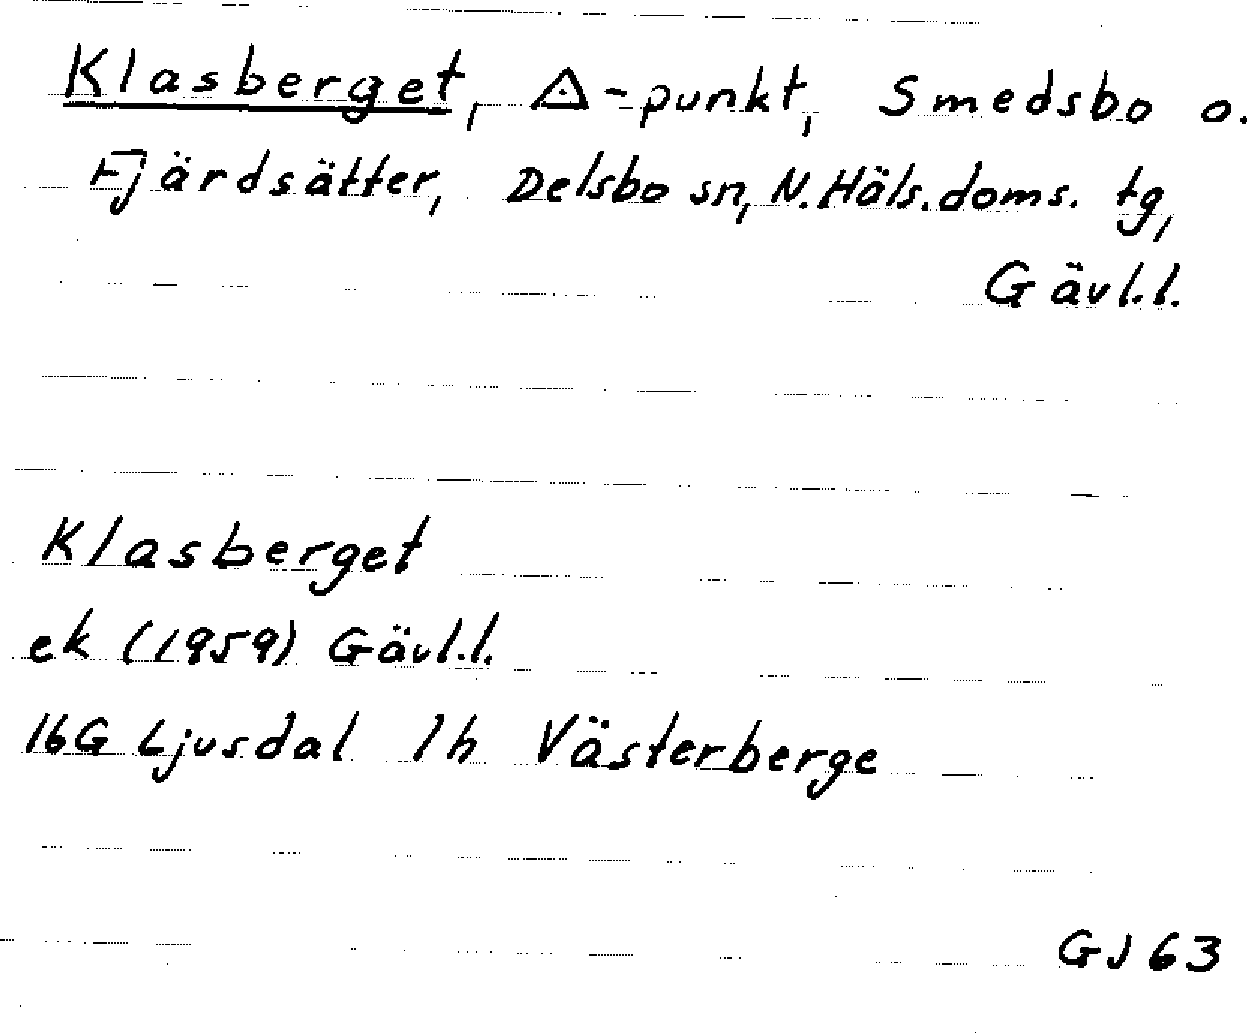 Klasberget, △-punkt, Smedsbo o.
Fjärdsätter, Delsbo sn, N. Häls. doms. tg,
Gävl.l.
Klasberget
ek (1959) Gävl.l.
16G Ljusdal 1h Västerberge
GJ 63